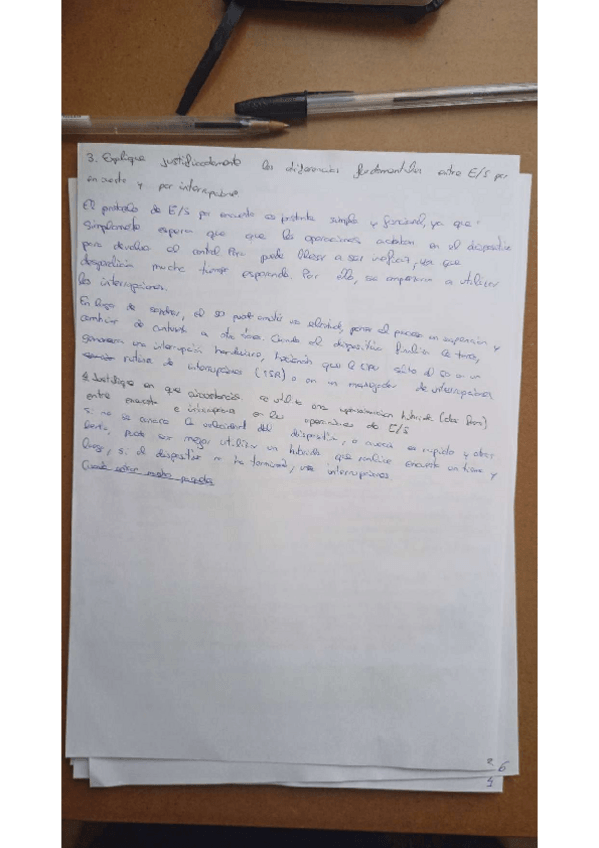 3. Explique justificadamente las diferencias fundamentales entre E/S por
encuesta y por interrupciones
El protocolo de E/S por encuesta es bastante simple y funcional, ya que
simplemente espera que que las operaciones acaben en el dispositivo
para devolver el control. Pero puede llegar a ser ineficaz, ya que
desperdicia mucho tiempo esperando. Por ello, se empezaron a utilizar
las interrupciones.
En lugar de sondear, el SO puede emitir una solicitud, poner el proceso en suspensión y
cambiar de contexto a otra tarea. Cuando el dispositivo finalice la tarea,
generará una interrupción hardware, haciendo que la CPU salte al SO a un
rutina de interrupciones (ISR) o en un manejador de interrupciones
4. Justifique en que circunstancias se utiliza una aproximacion híbrida (dos fases)
entre encuesta e interrupciones en las operaciones de E/S
Si no se conoce la velocidad del dispositivo, o a veces es rapido y otras
lento, puede ser mejor utilizar un híbrido que realice encuesta un tiempo y
luego, si el dispositivo no ha terminado, usa interrupciones
6